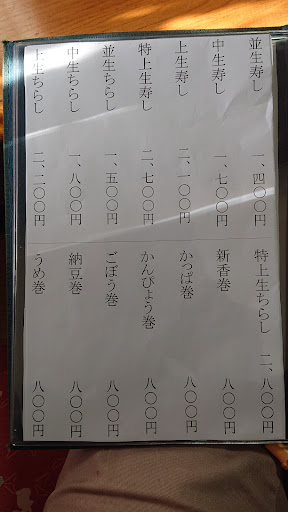 並生寿し 一、四〇〇円
中生寿し 一、七〇〇円
上生寿し 二、一〇〇円
特上生寿し 二、七〇〇円
並生ちらし 一、五〇〇円
中生ちらし 一、八〇〇円
上生ちらし 二、二〇〇円
特上生ちらし 二、八〇〇円
新香巻 八〇〇円
かっぱ巻 八〇〇円
かんぴょう巻 八〇〇円
ごぼう巻 八〇〇円
納豆巻 八〇〇円
うめ巻 八〇〇円